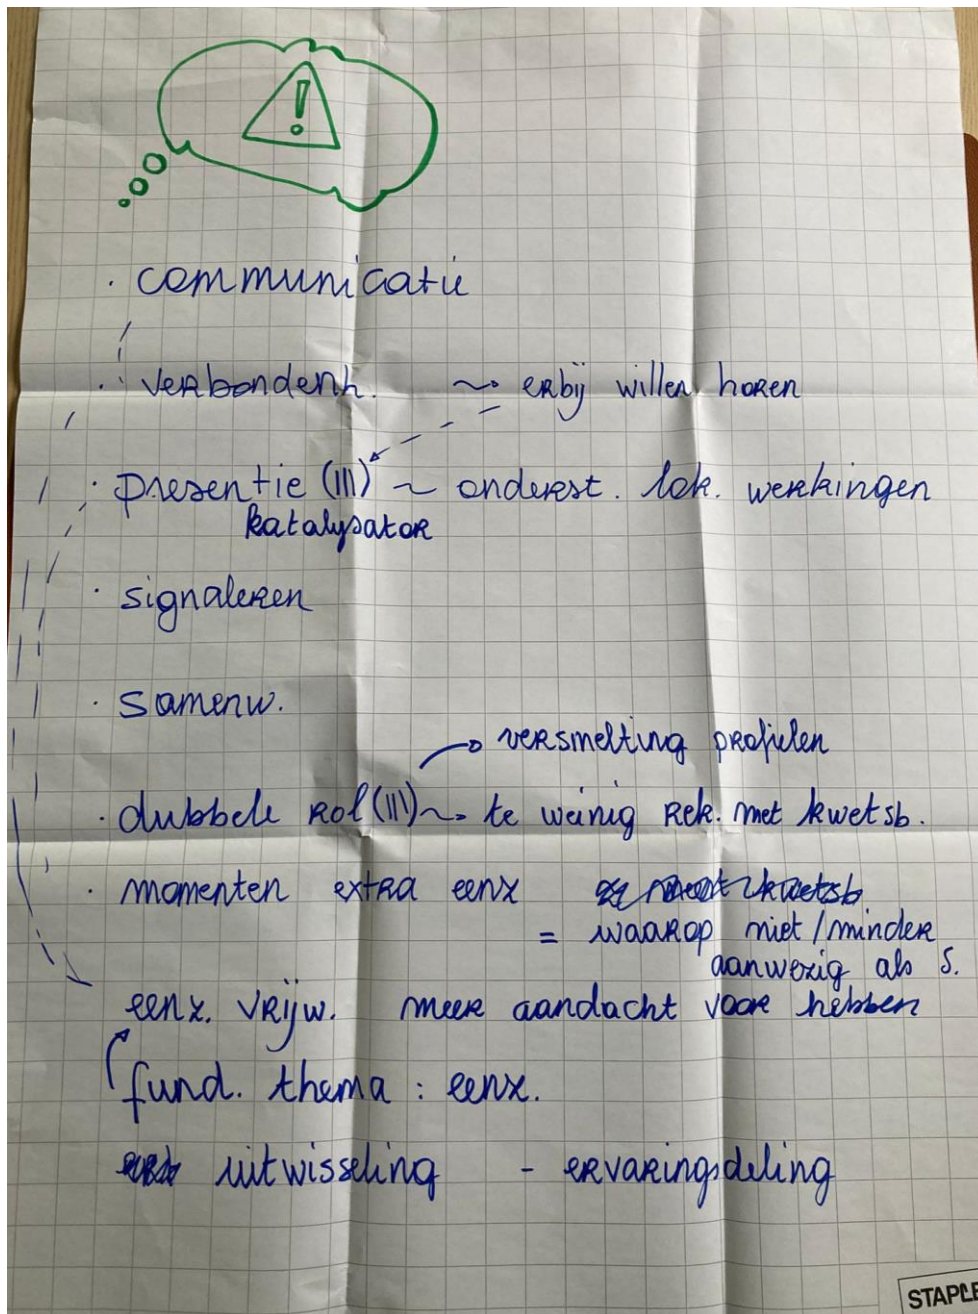 !
· communicatie
· verbondenh. ~> erbij willen horen
· presentie (III) ~ onderst. lok. werkingen
katalysator
· signaleren
· samenw.
→ versmelting profielen
· dubbele rol (III) ~> te weinig rek. met kwetsb.
· momenten extra eenz
= waarop niet/minder
aanwezig als S.
eenz. vrijw. meer aandacht voor hebben
fund. thema : eenz.
uitwisseling - ervaringsdeling
STAPLE